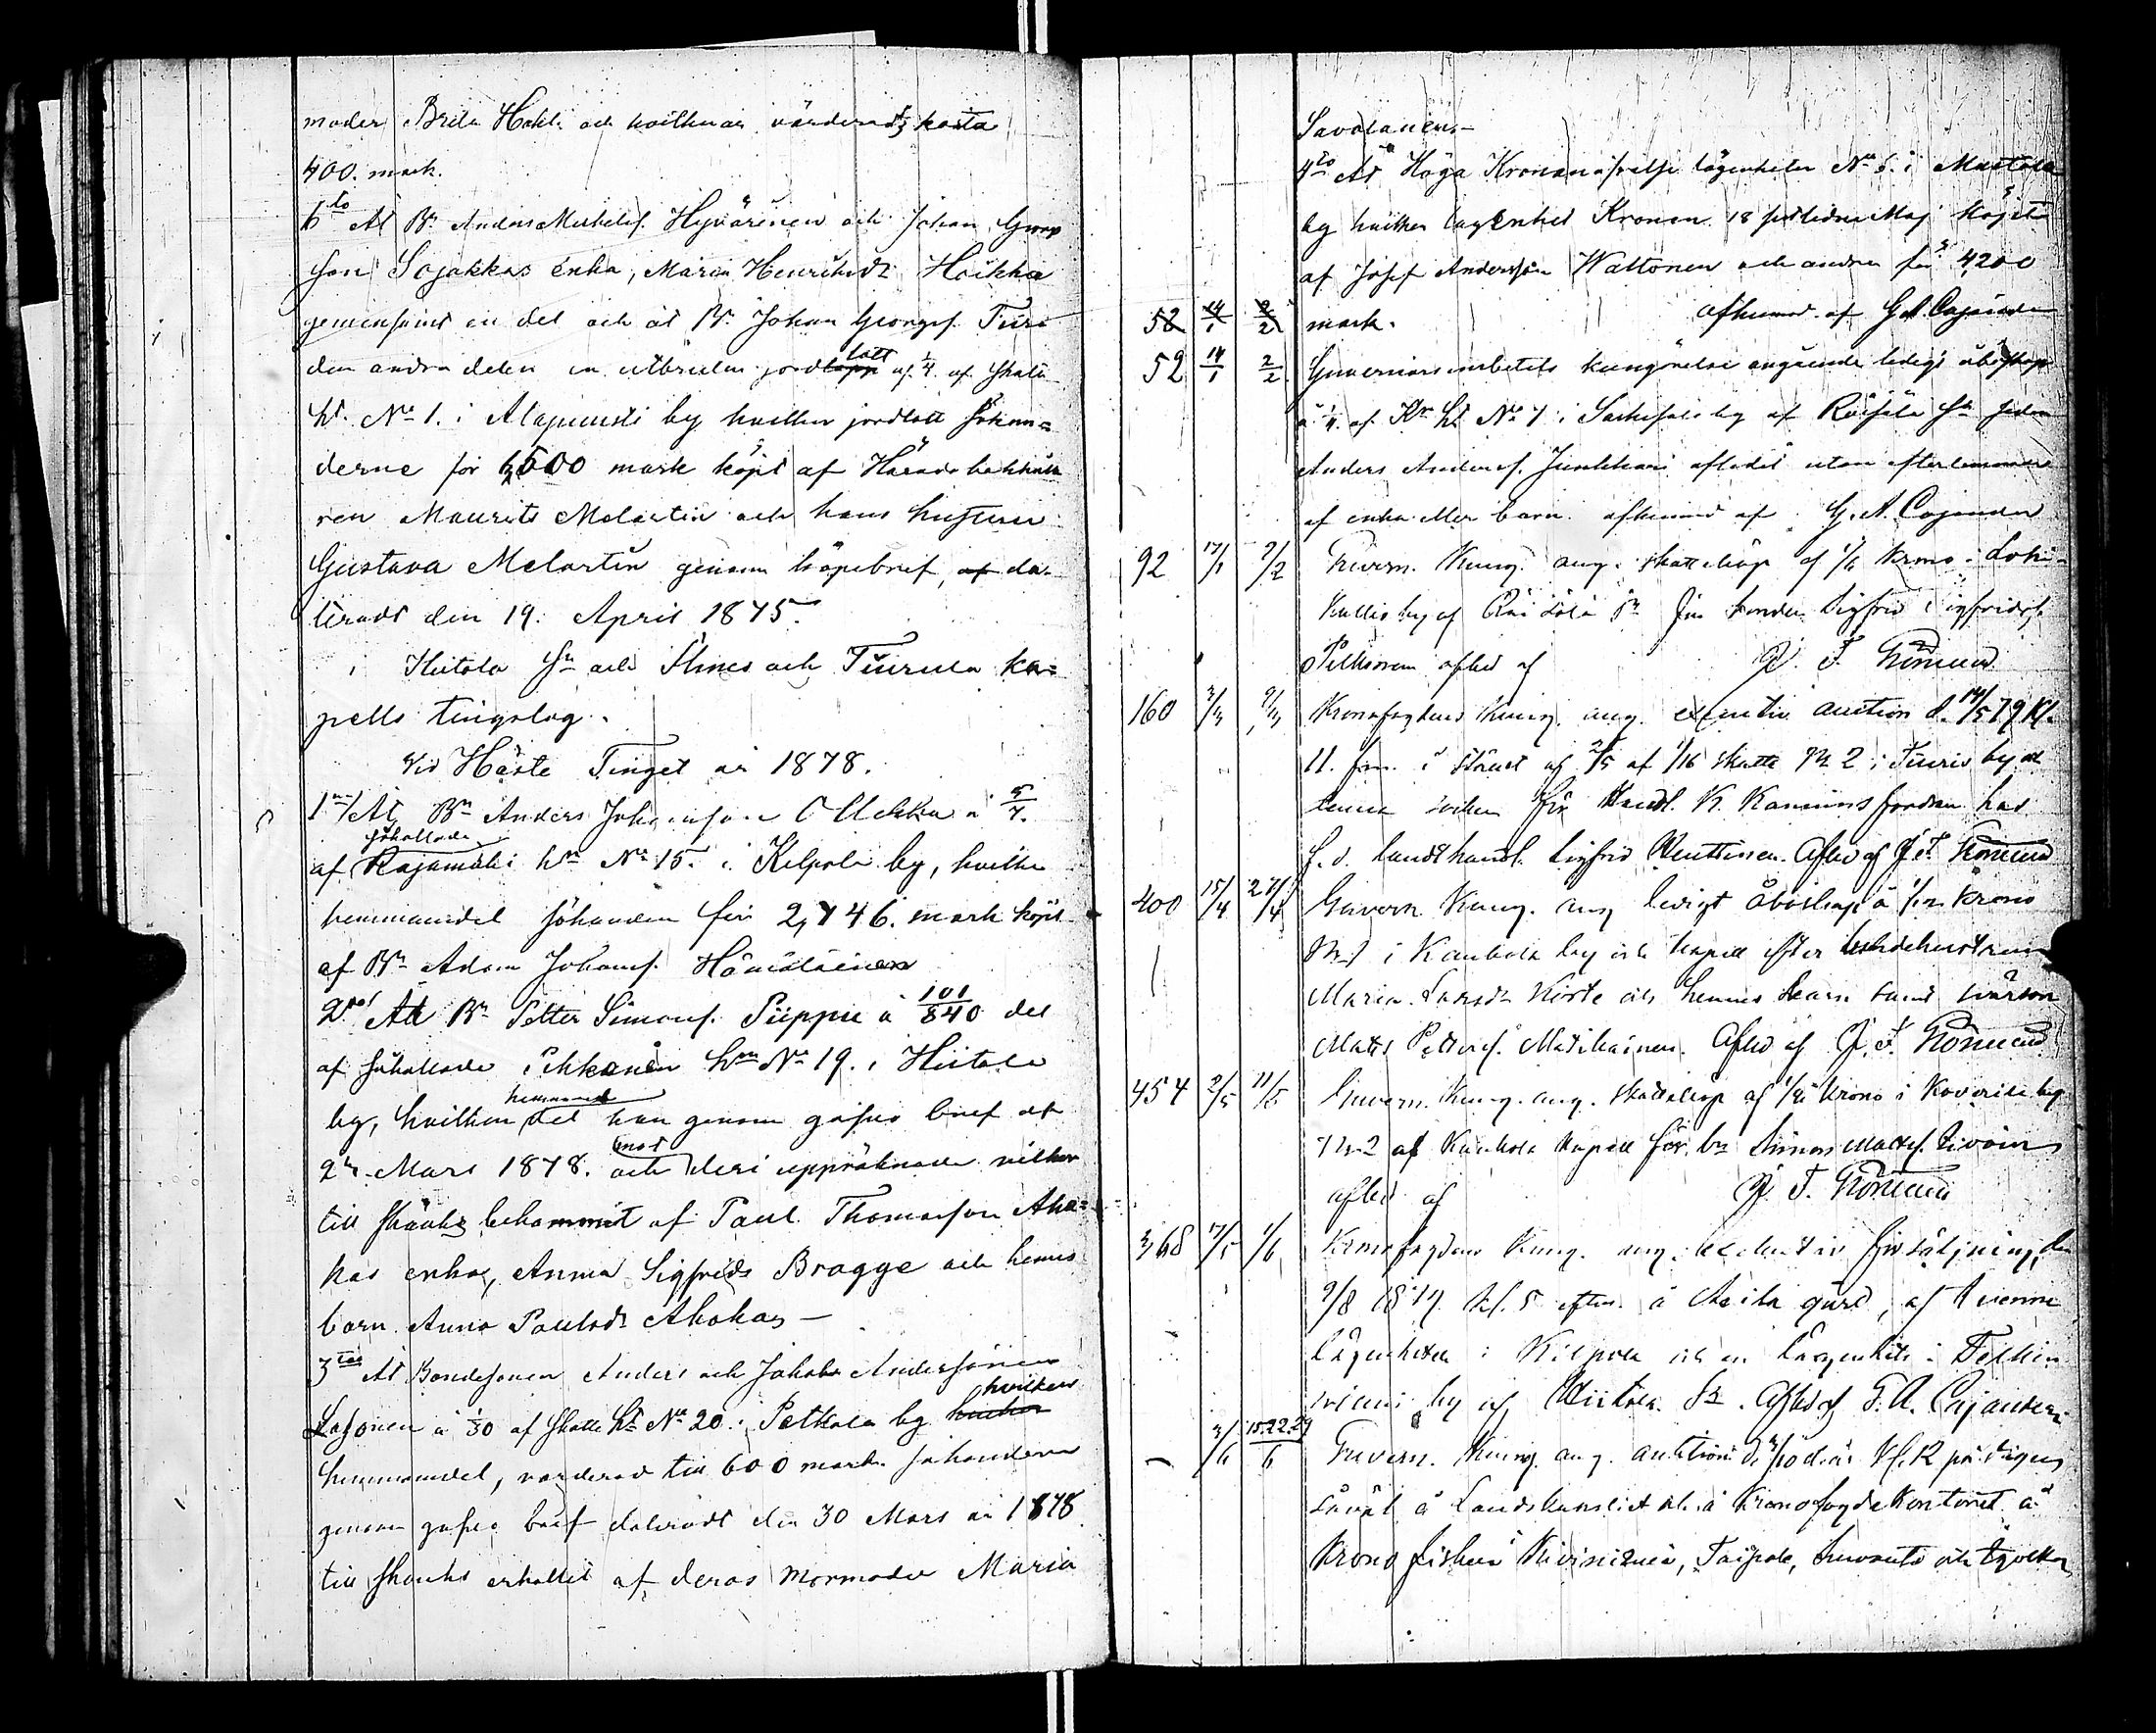 moder Brita Hakli och hvilkas värderadt kosta
400. mark.
6to At Bn Anders Michelsf. Hyvärinen och Johan Georg
son Sojakkas enka, Maria Henriksdr Hoikka
gemensamt en del och åt Bn Johan Georgsf. Turi
den andra delen en utbruten jordlapp lott af 1/4 af Skatte
ht No 1. i Alapuusti by hvilken jordlott sökan=
derne för 6,500 mark köpt af Häradshöfdin
ren Maurits Melartin och hans hustru
Gustava Melartin genom köpebref, af da-
teradt den 19. April 1875.
i Hiitola sn och Ilmes och Tiurula ka=
pells tingslag.
Vid Höste Tinget år 1878.
1mo/ At Bn Anders Johansson Ollikka å 5/7.
af såkallade Rajamäki hn No 15. i Kilpola by, hvilken
hemmansdel sökanden för 2,746. mark köpt
af Bn Adam Johansf. Hämäläinen
2do/ At Bn Petter Simonsf. Piippu å 101/840 del
af såkallade Pekkanen hn No 19. i Hiitola
by, hvilken hemmans del han genom gåfvo bref af
2n Mars 1878. och mot deri uppräknade vilkor
till skänks bekommit af Paul Thomasson Aho=
kas enka, Anna Sigfrids Bragge och hennes
barn Anna Paulsdr Ahokas —
3tio At Bondesonen Anders och Jakob Anderssöner
Lasonen å 1/30 af skatte ht No 20. i Petkola by hvilken
hemmansdel, värderad till 600 mark sökanderne
genom gåfvo bref dateradt den 30 Mars år 1878
till skänks erhållit af deras mormoder Maria
Savolainen.-
4to At Höga Kronan å frälse lägenheten No 5. i Mustola
by hvilken lägenhet Kronan 18 sistlidne Maj köpt
af Josef Andersson Waltonen och andra för 4200
52 14/1 2/2 mark. afkunnad af G A Cajander
52 14/1 2/2 Guvernörsembetets kungörelse angående ledigt åboskap
å 1/4 af Kr ht No 7 i Sarkisalo by af Räisälä sn sedan
Anders Andersf. Junkkari aflidit utan efterlemnande
af enka eller barn afkunnad af G. A. Cajander
92 17/1 9/2 Guvern. Kung. ang. skatteköp af 1/6 krono i Lohi-
kallis by af Räisälä sn för bonden Sigfrid Sigfridsf.
Pilkonen afkd af J. F. Grönlund
160 3/3 9/3 Kronofogdens kung. ang. exekutiv auction d. 14/5 79 Kl.
11. fm. i stället af 2/5 af 1/16 skatte No 2 i Tiuris by af
denna socken för Handl. K. Kanninens fordran hos
f. d. landthandl. Sigfrid Kuttinen. Afkd af J. F. Grönlund
400 15/4 27/4 Guvern. Kung. ang ledigt åboskap å 1/12 krono
No 1 i Kaukola by och kapell efter bondehustrun
Maria Larsdr Köste och hennes barn samt svärson
Matts Pettersf. Matikainen. Afkd af J. F. Grönlund
454 2/5 11/5 Guvern. Kung. ang. skatteköp af 1/8 krono i Koverila by
No 2 af Kaukola kapell för bn Simon Mattsf. Sivoin
afkd af J. F. Grönlund
368 17/5 1/6 Kronofogdens Kung. ang. exekutiv försäljning, den
9/8 1879 kl. 5 eftm. å Asila gård, af tvenne
lägenheter i Kilpola och en lägenhet i Petkin
niemi by af Hiitola Sn. Afkd af G. A. Cajander.
— 3/6 15.22.29/6 Guvern. Kung. ang. auktion d. 1/10 d. år kl. 12 på dagen
såväl å Landskansliet och å Kronofogdekontoret å
Krono fisken Kiviniemi, Taipale, Suvanto och